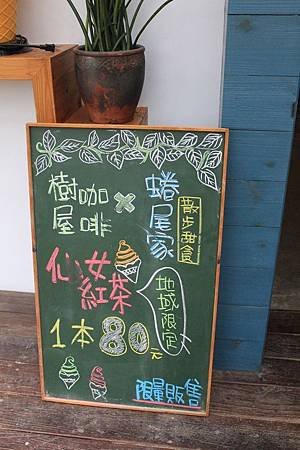 樹屋咖啡 × 蜷尾家
散步甜食
仙女紅茶
地域限定
1本80元
限量販售